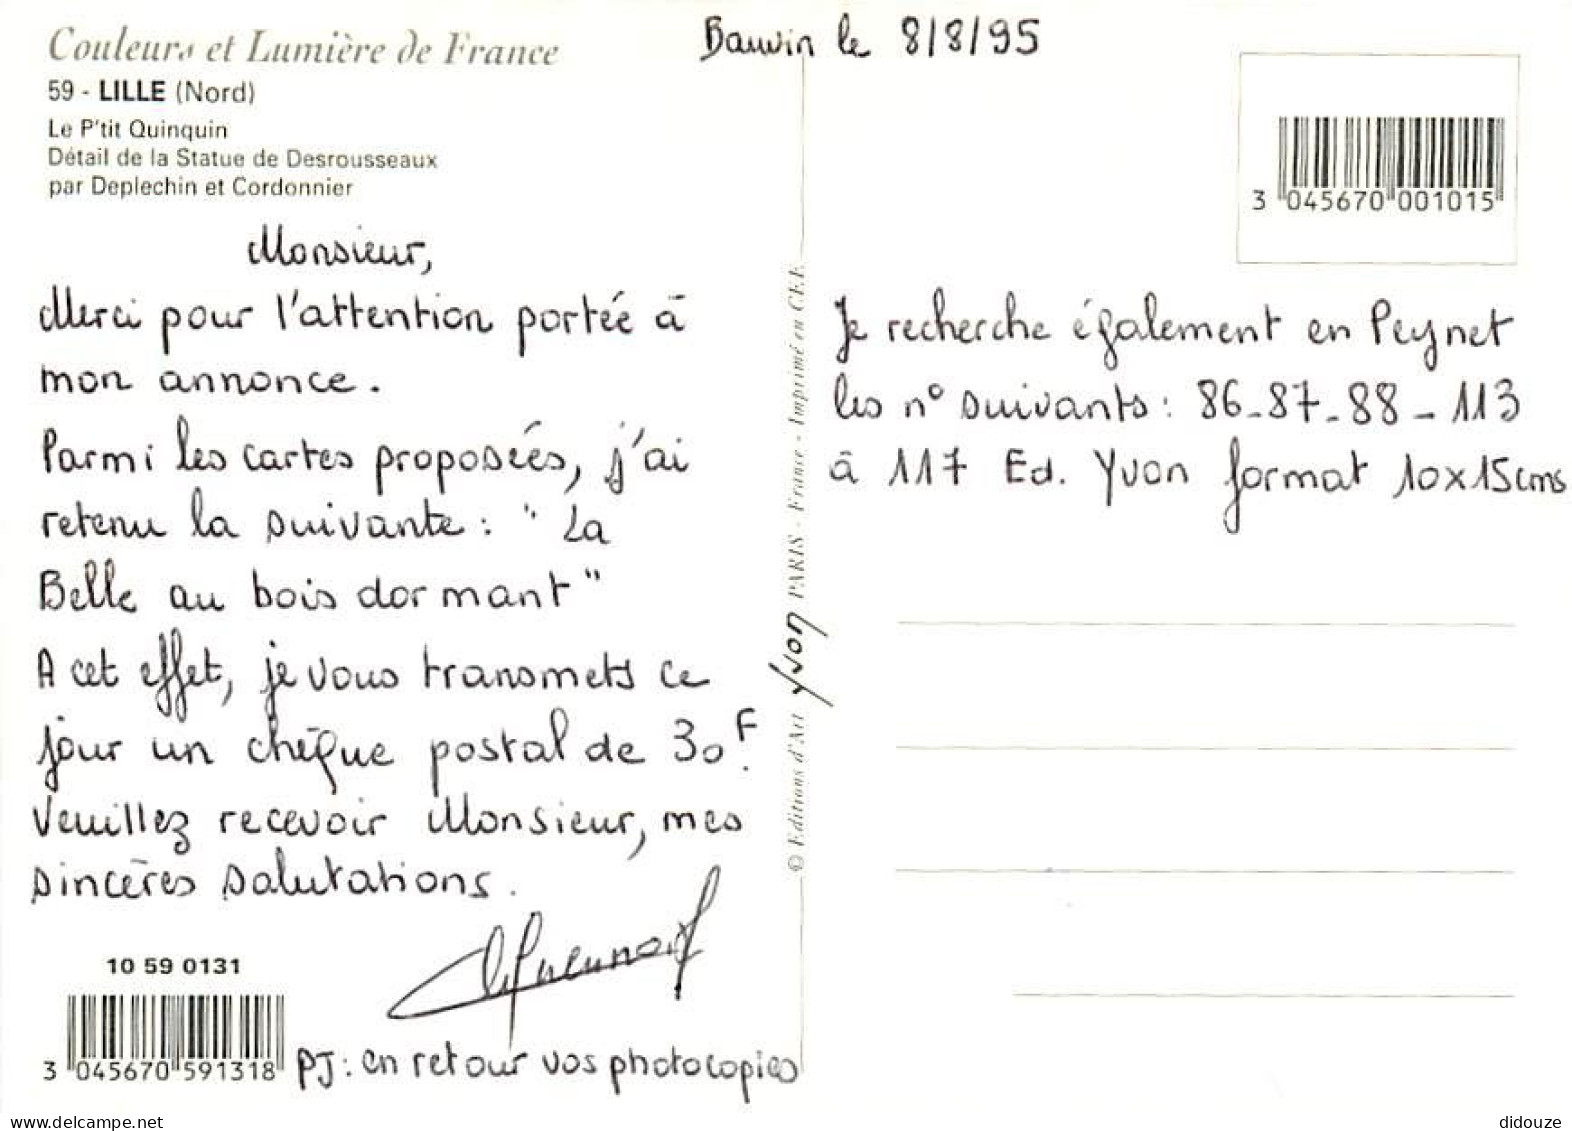 Couleurs et Lumière de France
59 - LILLE (Nord)
Le P'tit Quinquin
Détail de la Statue de Desrousseaux
par Deplechin et Cordonnier
Bauvin le 8/8/95
3 045670 001015
Monsieur,
Merci pour l'attention portée à
mon annonce.
Parmi les cartes proposées, j'ai
retenu la suivante : " La
Belle au bois dormant "
A cet effet, je vous transmets ce
jour un chèque postal de 30F.
Veuillez recevoir Monsieur, mes
sincères salutations.
10 59 0131
3 045670 591318
PJ : en retour vos photocopies
© Editions d'Art Yvon PARIS - France - Imprimé en CEE
Je recherche également en Peynet
les n° suivants : 86-87-88-113
à 117 Ed. Yvon format 10x15cms
didouze
delcampe.net